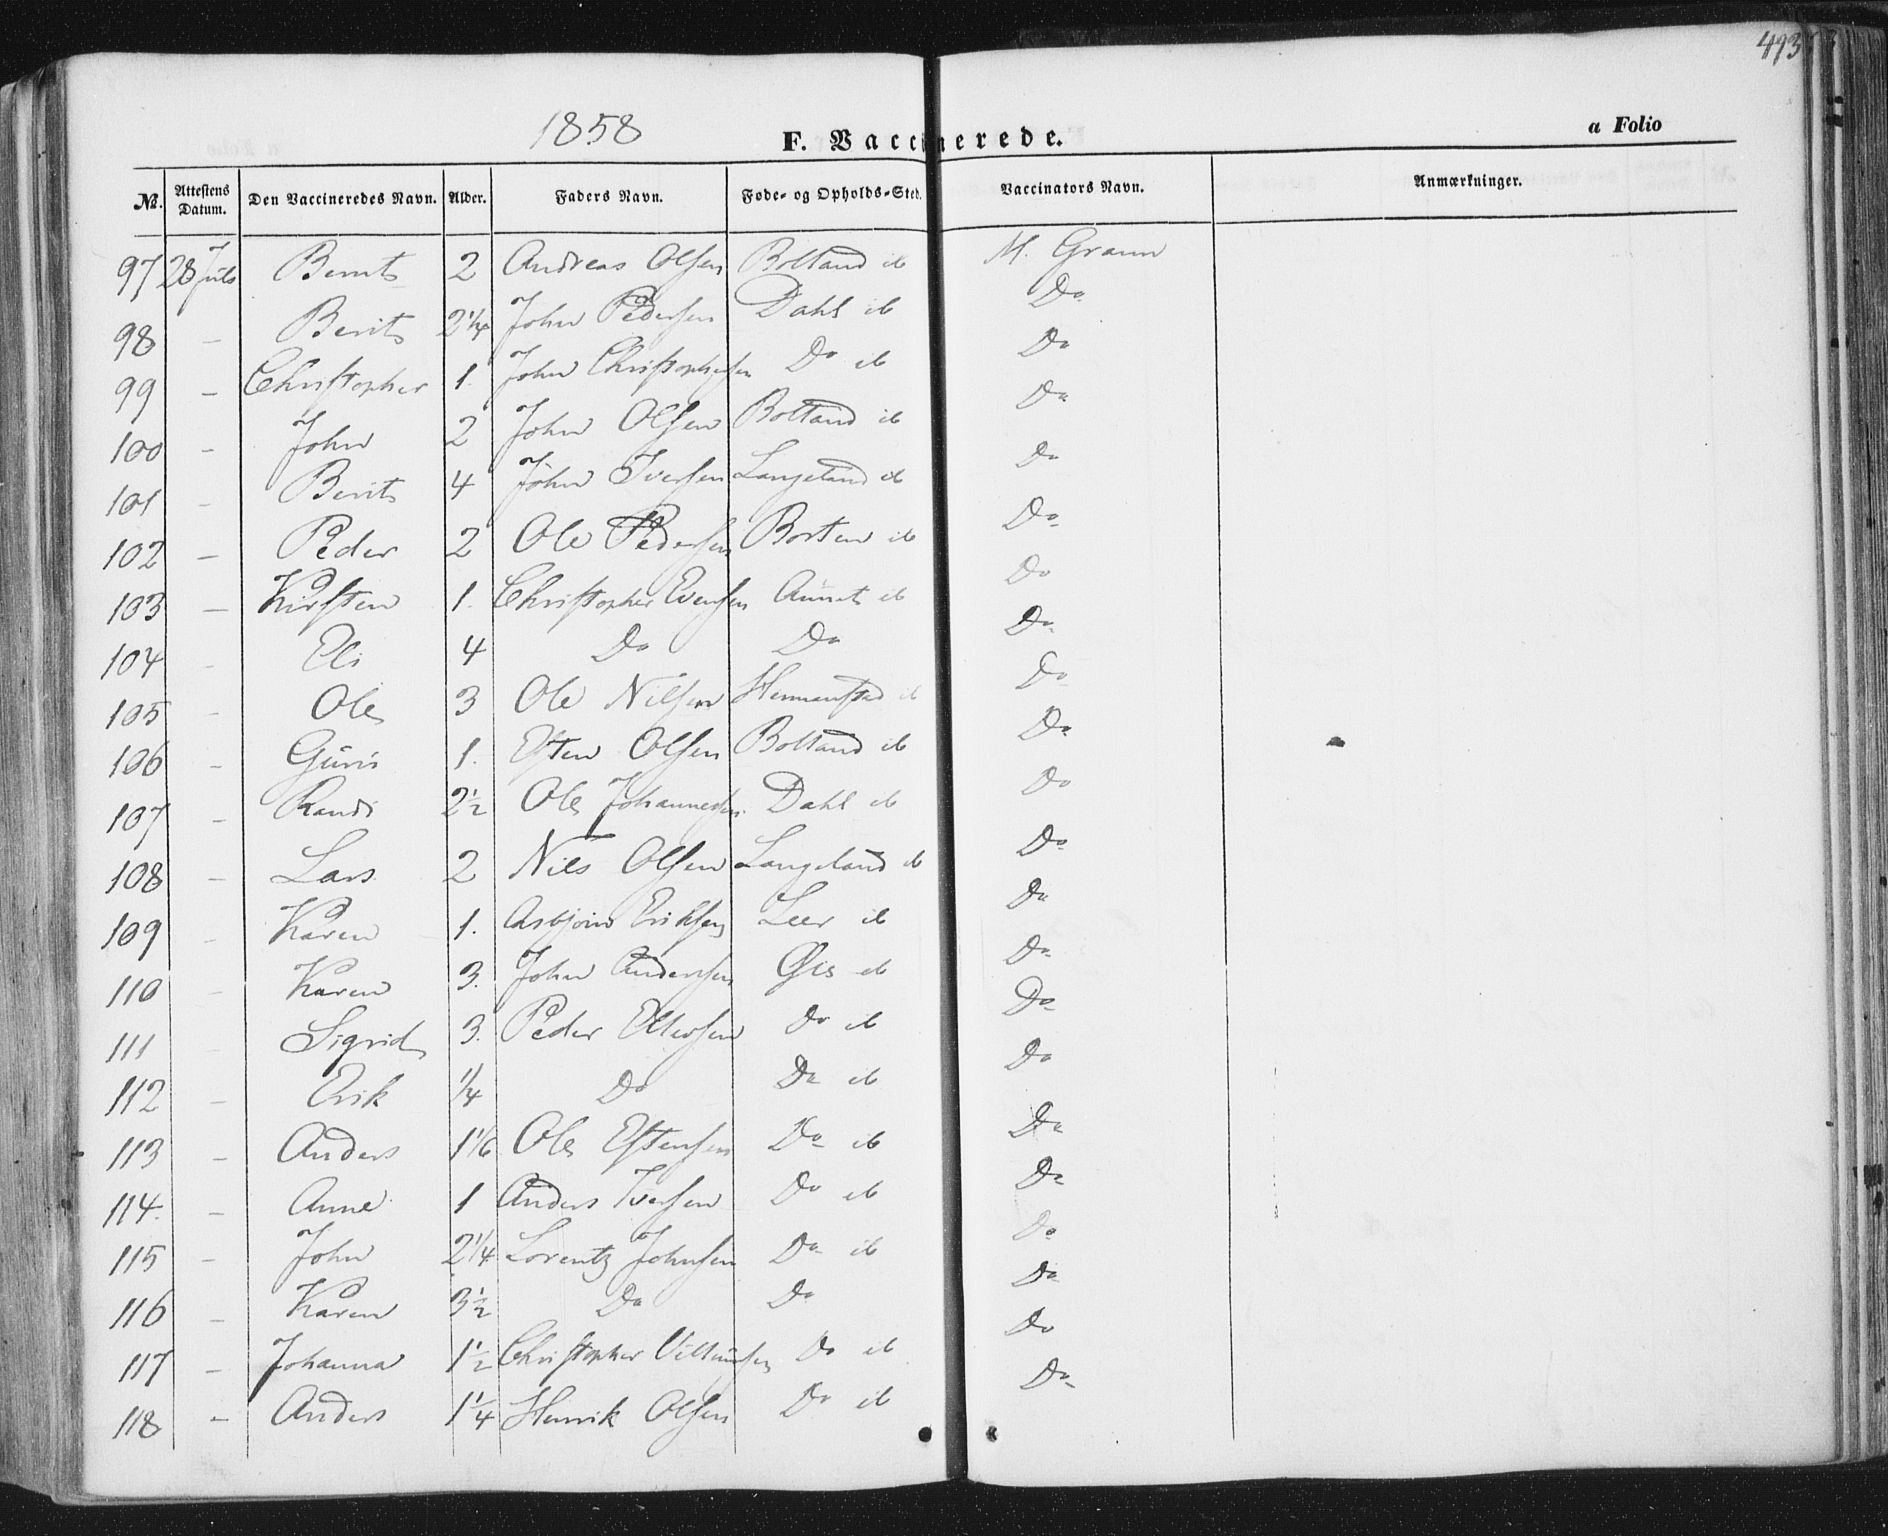 493
1858
F. Vaccinerede.
a Folio
№. Attestens Datum. Den Vaccineredes Navn. Alder. Faders Navn. Føde- og Opholds-Sted. Vaccinators Navn. Anmærkninger.
97 28 Juli Bernt 2 Andreas Olsen Bolland ib M. Graun
98 - Berit 2 1/4 John Pedersen Dahl ib Do
99 - Christopher 1. John Christophersen Do ib Do
100 - John 2 John Olsen Bolland ib Do
101 - Berit 4 John Iversen Langeland ib Do
102 - Peder 2 Ole Pedersen Borten ib Do
103 - Kirsten 1. Christopher Evensen Aunet ib Do
104 - Eli 4 Do Do Do
105 - Ole 3 Ole Nilsen Hermanstad ib Do
106 - Guri 1. Esten Olsen Bolland ib Do
107 - Randi 2 1/2 Ole Johannesen Dahl ib Do
108 - Lars 2 Nils Olsen Langeland ib Do
109 - Karen 1. Asbjörn Eriksen Leer ib Do
110 - Karen 3. John Andersen Øis ib Do
111 - Sigrid 3. Peder Ellevsen Do ib Do
112 - Erik 1/4 Do Do ib Do
113 - Anders 1 1/6 Ole Estensen Do ib Do
114. - Anne 1 Anders Iversen Do ib Do
115 - John 2 1/4 Lorentz Johnsen Do ib Do
116 - Karen 3 1/2 Do Do Do
117 - Johanna 1 1/2 Christopher Do ib Do
118 - Anders 1 1/4 Henrik Olsen Do ib Do